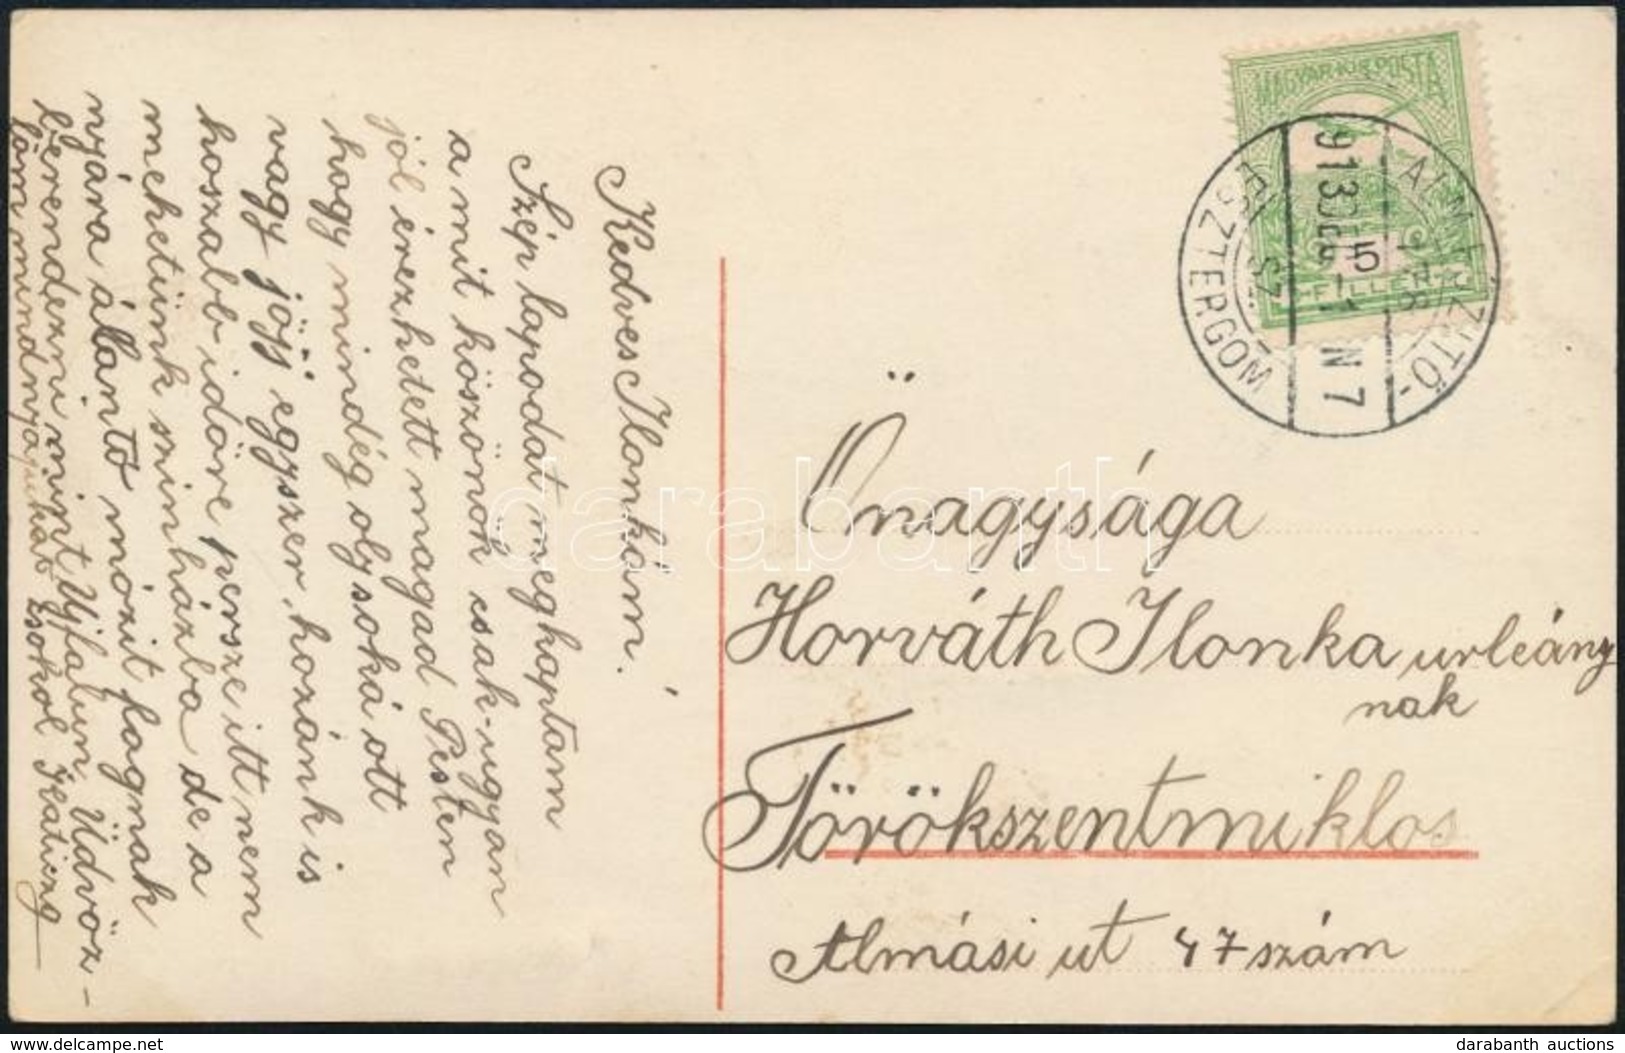 Kedves Ilonkám!
Szép lapodat meghaptam
a mit köszönök csak-ugyan
jól érezhetett magad Pesten
hogy mindég oly soká ott
vagy jöjj egyszer hozánk is
hoszabb időre persze itt nem
mehetünk szinházba de a
nyára álantó mozit fagnak
berendezni mint Ujfalun Üdvöz-
löm mindnyájukat csokol Katiczg
MAGYAR KIR. POSTA
5
FILLER
ALMFÜZITŐ-
ESZTERGOM
913
N 7
Önagysága
Horváth Ilonka urleány
nak
Törökszentmiklos
Almási ut 47 szám
darabanth
delcampe.net
darabanth auctions